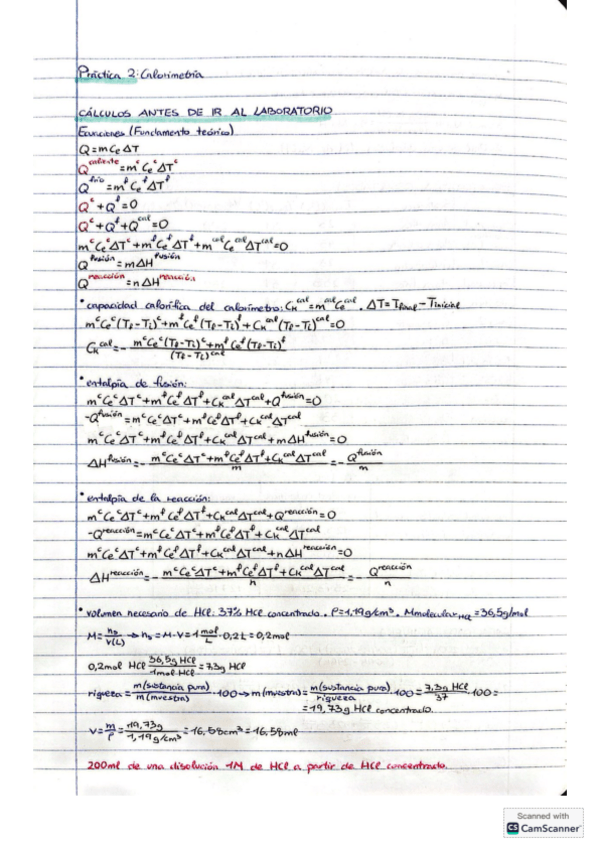 Práctica 2: Calorimetría
CÁLCULOS ANTES DE IR AL LABORATORIO
Ecuaciones (Fundamento teórico)
Q=mCeΔT
Q^caliente=m^c Ce^c ΔT^c
Q^frío=m^f Ce^f ΔT^f
Q^c+Q^f=0
Q^c+Q^f+Q^cal=0
m^c Ce^c ΔT^c+m^f Ce^f ΔT^f+m^cal Ce^cal ΔT^cal=0
Q^fusión=mΔH^fusión
Q^reacción=nΔH^reacción
• capacidad calorífica del calorímetro: Ck^cal=m^cal Ce^cal. ΔT=Tfinal-Tinicial
m^c Ce^c (Tf-Ti)^c+m^f Ce^f (Tf-Ti)^f+Ck^cal (Tf-Ti)^cal=0
Ck^cal=- m^c Ce^c (Tf-Ti)^c+m^f Ce^f (Tf-Ti)^f / (Tf-Ti)^cal
• entalpía de fusión:
m^c Ce^c ΔT^c+m^f Ce^f ΔT^f+Ck^cal ΔT^cal+Q^fusión=0
-Q^fusión=m^c Ce^c ΔT^c+m^f Ce^f ΔT^f+Ck^cal ΔT^cal
m^c Ce^c ΔT^c+m^f Ce^f ΔT^f+Ck^cal ΔT^cal+mΔH^fusión=0
ΔH^fusión=- m^c Ce^c ΔT^c+m^f Ce^f ΔT^f+Ck^cal ΔT^cal / m =- Q^fusión / m
• entalpía de la reacción:
m^c Ce^c ΔT^c+m^f Ce^f ΔT^f+Ck^cal ΔT^cal+Q^reacción=0
-Q^reacción=m^c Ce^c ΔT^c+m^f Ce^f ΔT^f+Ck^cal ΔT^cal
m^c Ce^c ΔT^c+m^f Ce^f ΔT^f+Ck^cal ΔT^cal+nΔH^reacción=0
ΔH^reacción=- m^c Ce^c ΔT^c+m^f Ce^f ΔT^f+Ck^cal ΔT^cal / n =- Q^reacción / n
• volumen necesario de HCl: 37% HCl concentrado. ρ=1,19g/cm³. Mmolecular HCl=36,5g/mol
M= ns / V(L) → ns=M·V=1 mol/L · 0,2L=0,2mol
0,2mol HCl 36,5g HCl / 1mol HCl =7,3g HCl
riqueza= m(sustancia pura) / m(muestra) ·100→m(muestra)= m(sustancia pura) / riqueza ·100= 7,3g HCl / 37 ·100=
=19,73g HCl concentrado.
V= m/ρ = 19,73g / 1,19g/cm³ =16,58cm³=16,58ml
200ml de una disolución 1M de HCl a partir de HCl concentrado.
Scanned with
CS CamScanner